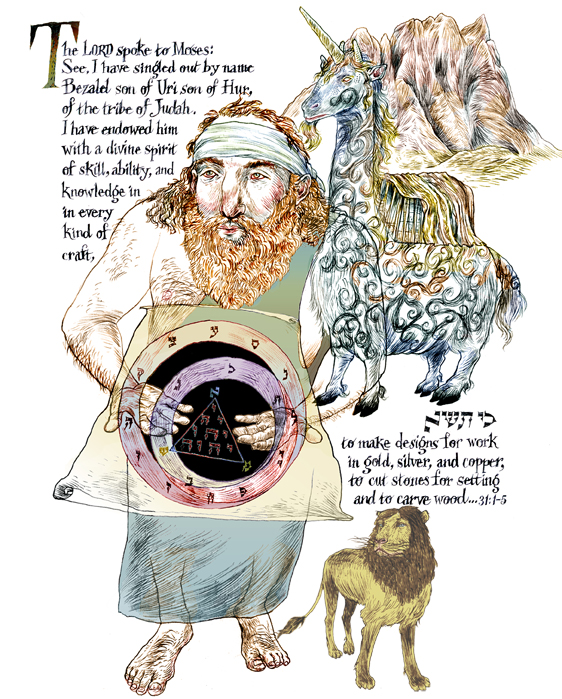 The LORD spoke to Moses:
See, I have singled out by name
Bezalel son of Uri son of Hur,
of the tribe of Judah.
I have endowed him
with a divine spirit
of skill, ability, and
knowledge in
in every
kind of
craft,
א
י
יה
יהו
יהוה
כי תשא
to make designs for work
in gold, silver, and copper,
to cut stones for setting
and to carve wood... 31:1-5